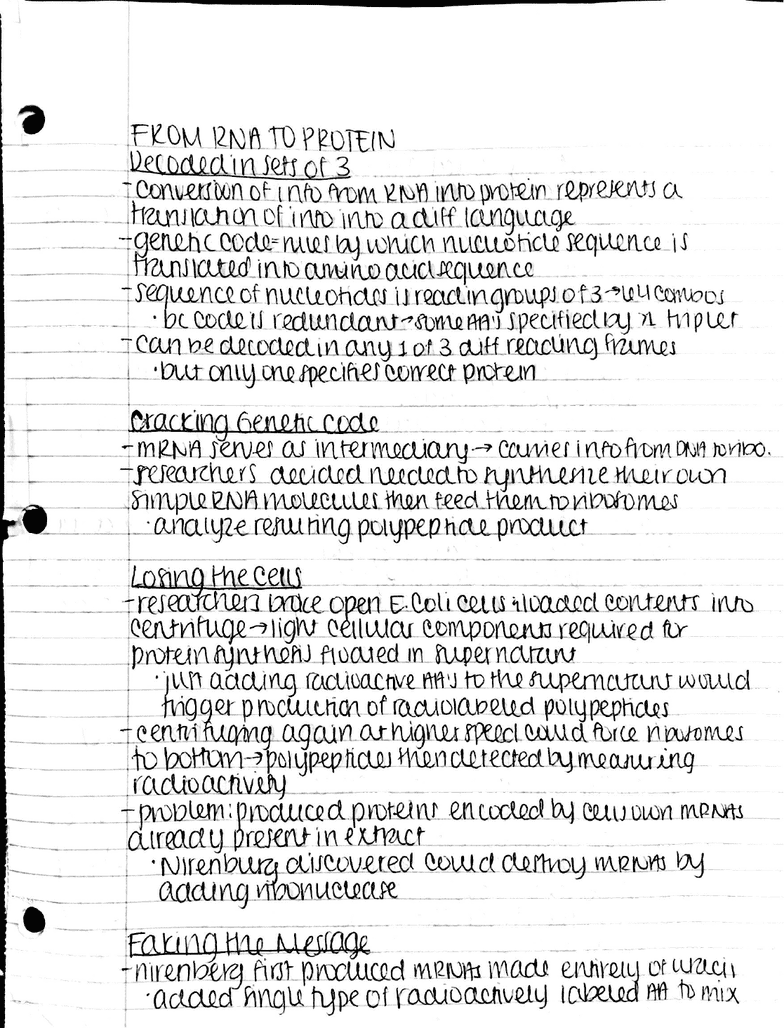 FROM RNA TO PROTEIN
Decoded in sets of 3
-conversion of info from RNA into protein represents a
translation of info into a diff language
-genetic code=rules by which nucleotide sequence is
translated into amino acid sequence
-sequence of nucleotides is read in groups of 3→64 combos
·bc code is redundant→some AA's specified by >1 triplet
-can be decoded in any 1 of 3 diff reading frames
·but only one specifies correct protein
Cracking Genetic code
-mRNA serves as intermediary→ carries info from DNA to ribo.
-researchers decided needed to synthesize their own
simple RNA molecules then feed them to ribosomes
·analyze resulting polypeptide product
Losing the Cells
-researchers broke open E.Coli cells & loaded contents into
centrifuge→light cellular components required for
protein synthesis floated in supernatant
·just adding radioactive AA's to the supernatant would
trigger production of radiolabeled polypeptides
-centrifuging again at higher speed could force ribosomes
to bottom→polypeptides then detected by measuring
radioactively
-problem: produced proteins encoded by cells own mRNAs
already present in extract
·Nirenburg discovered could destroy mRNAs by
adding ribonuclease
Faking the Message
-nirenberg first produced mRNAs made entirely of uracil
·added single type of radioactively labeled AA to mix